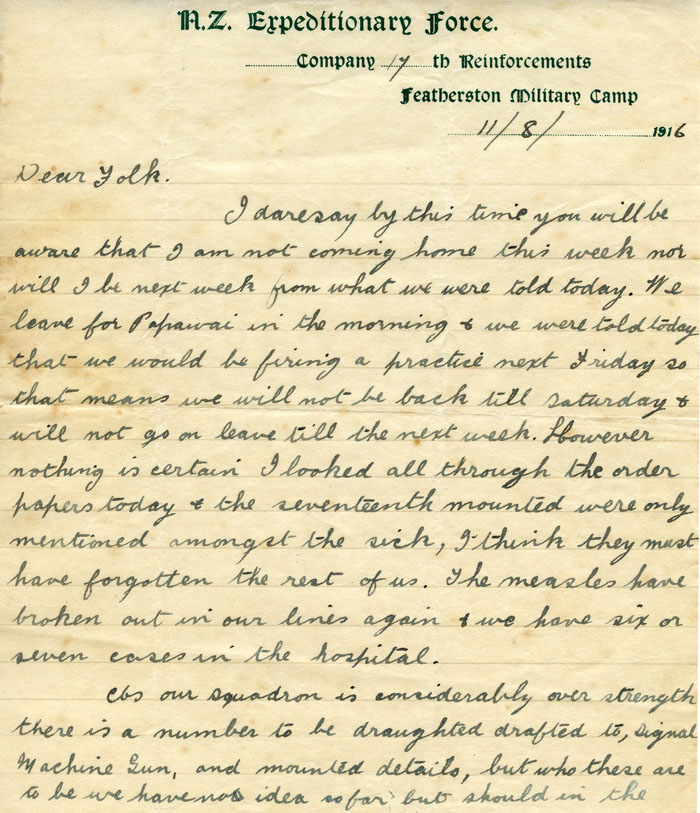 N.Z. Expeditionary Force.
Company 17 th Reinforcements
Featherston Military Camp
11/8/ 1916
Dear Folk.
I daresay by this time you will be
aware that I am not coming home this week nor
will I be next week from what we were told today. We
leave for Papawai in the morning & we were told today
that we would be firing a practice next Friday so
that means we will not be back till Saturday &
will not go on leave till the next week. However
nothing is certain I looked all through the order
papers today & the seventeenth mounted were only
mentioned amongst the sick, I think they must
have forgotten the rest of us. The measles have
broken out in our lines again & we have six or
seven cases in the hospital.
As our squadron is considerably over strength
there is a number to be draughted drafted to, Signal
Machine Gun, and mounted details, but who these are
to be we have no idea so far but should in the